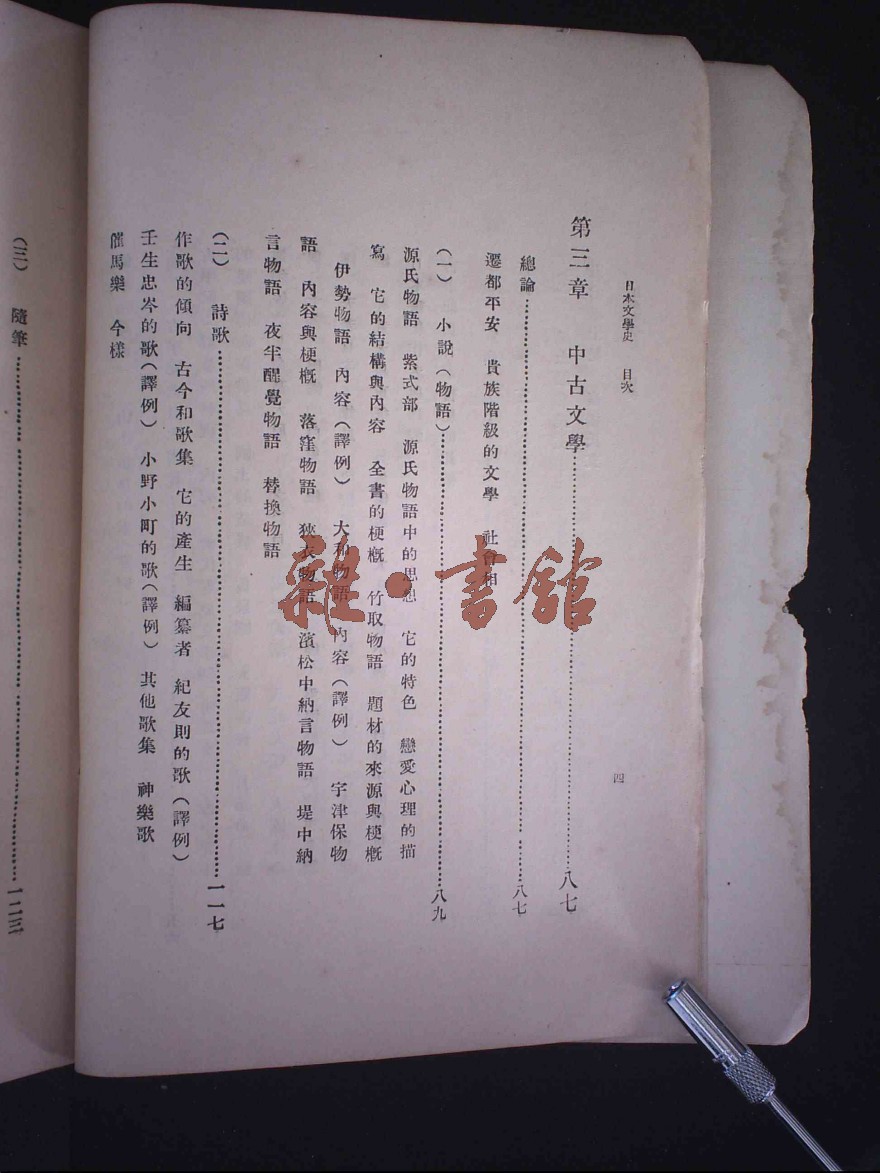 日本文學史　目次
四
第三章　中古文學……………八七
總論……………八七
遷都平安　貴族階級的文學　社會相
（一）　小說（物語）……………八九
源氏物語　紫式部　源氏物語中的思想　它的特色　戀愛心理的描
寫　它的結構與內容　全書的梗概　竹取物語　題材的來源與梗概
伊勢物語　內容（譯例）　大和物語　內容（譯例）　宇津保物
語　內容與梗概　落窪物語　狹衣物語　濱松中納言物語　堤中納
言物語　夜半醒覺物語　替換物語
（二）　詩歌……………一一七
作歌的傾向　古今和歌集　它的產生　編纂者　紀友則的歌（譯例）
壬生忠岑的歌（譯例）　小野小町的歌（譯例）　其他歌集　神樂歌
催馬樂　今樣
（三）　隨筆……………一二三
雜·書館